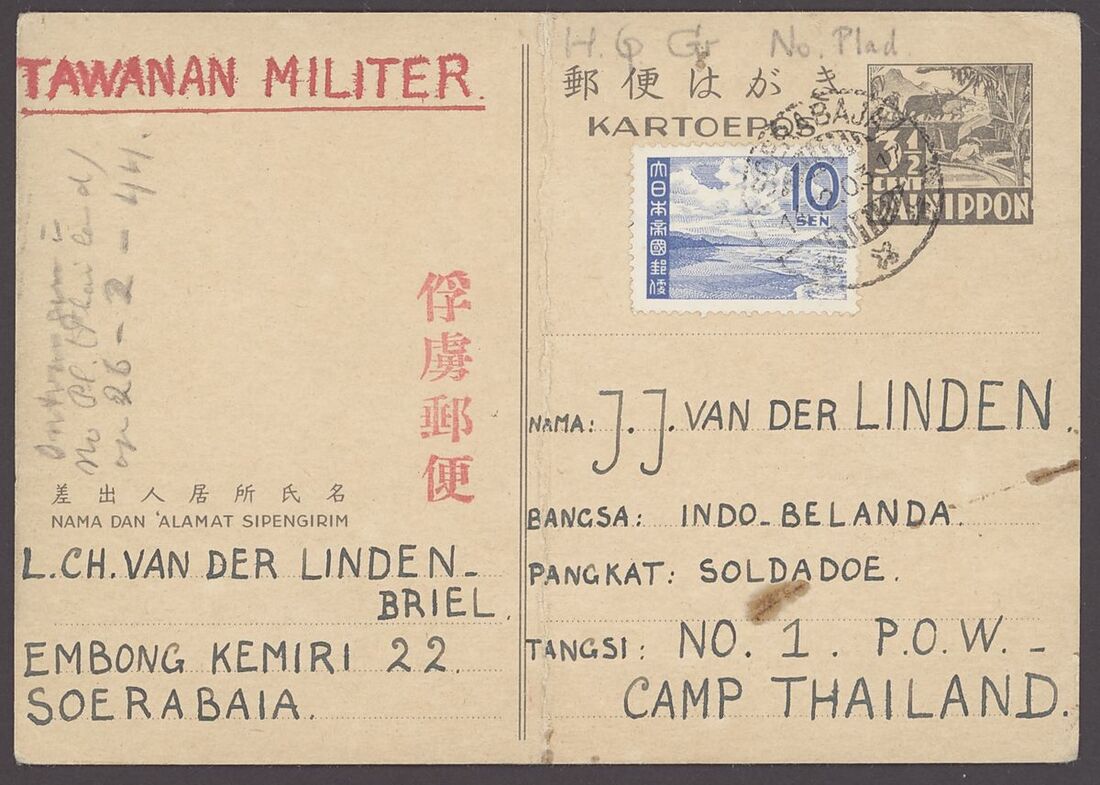 TAWANAN MILITER.
op 26-2-44.
俘虜郵便
差出人居所氏名
NAMA DAN 'ALAMAT SIPENGIRIM
L.CH. VAN DER LINDEN-
BRIEL.
EMBONG KEMIRI 22.
SOERABAIA.
No. Plad
郵便はがき
KARTOEPOS
大日本帝國郵便
10
SEN
3½
CENT
DAI NIPPON
NAMA: J.J. VAN DER LINDEN.
BANGSA: INDO-BELANDA.
PANGKAT: SOLDADOE.
TANGSI: NO. 1 P.O.W.-
CAMP THAILAND.